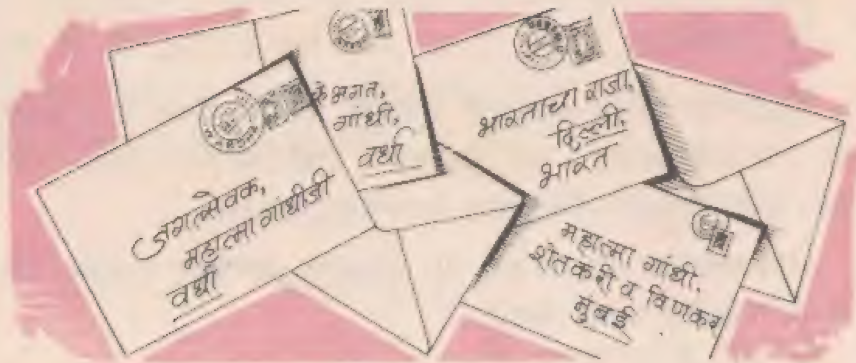 जगत्सेवक,
महात्मा गांधीजी
वर्धा
के भगत,
गांधी,
वर्धा
भारताचा राजा,
दिल्ली,
भारत
महात्मा गांधी,
शेतकरी व विणकर
मुंबई